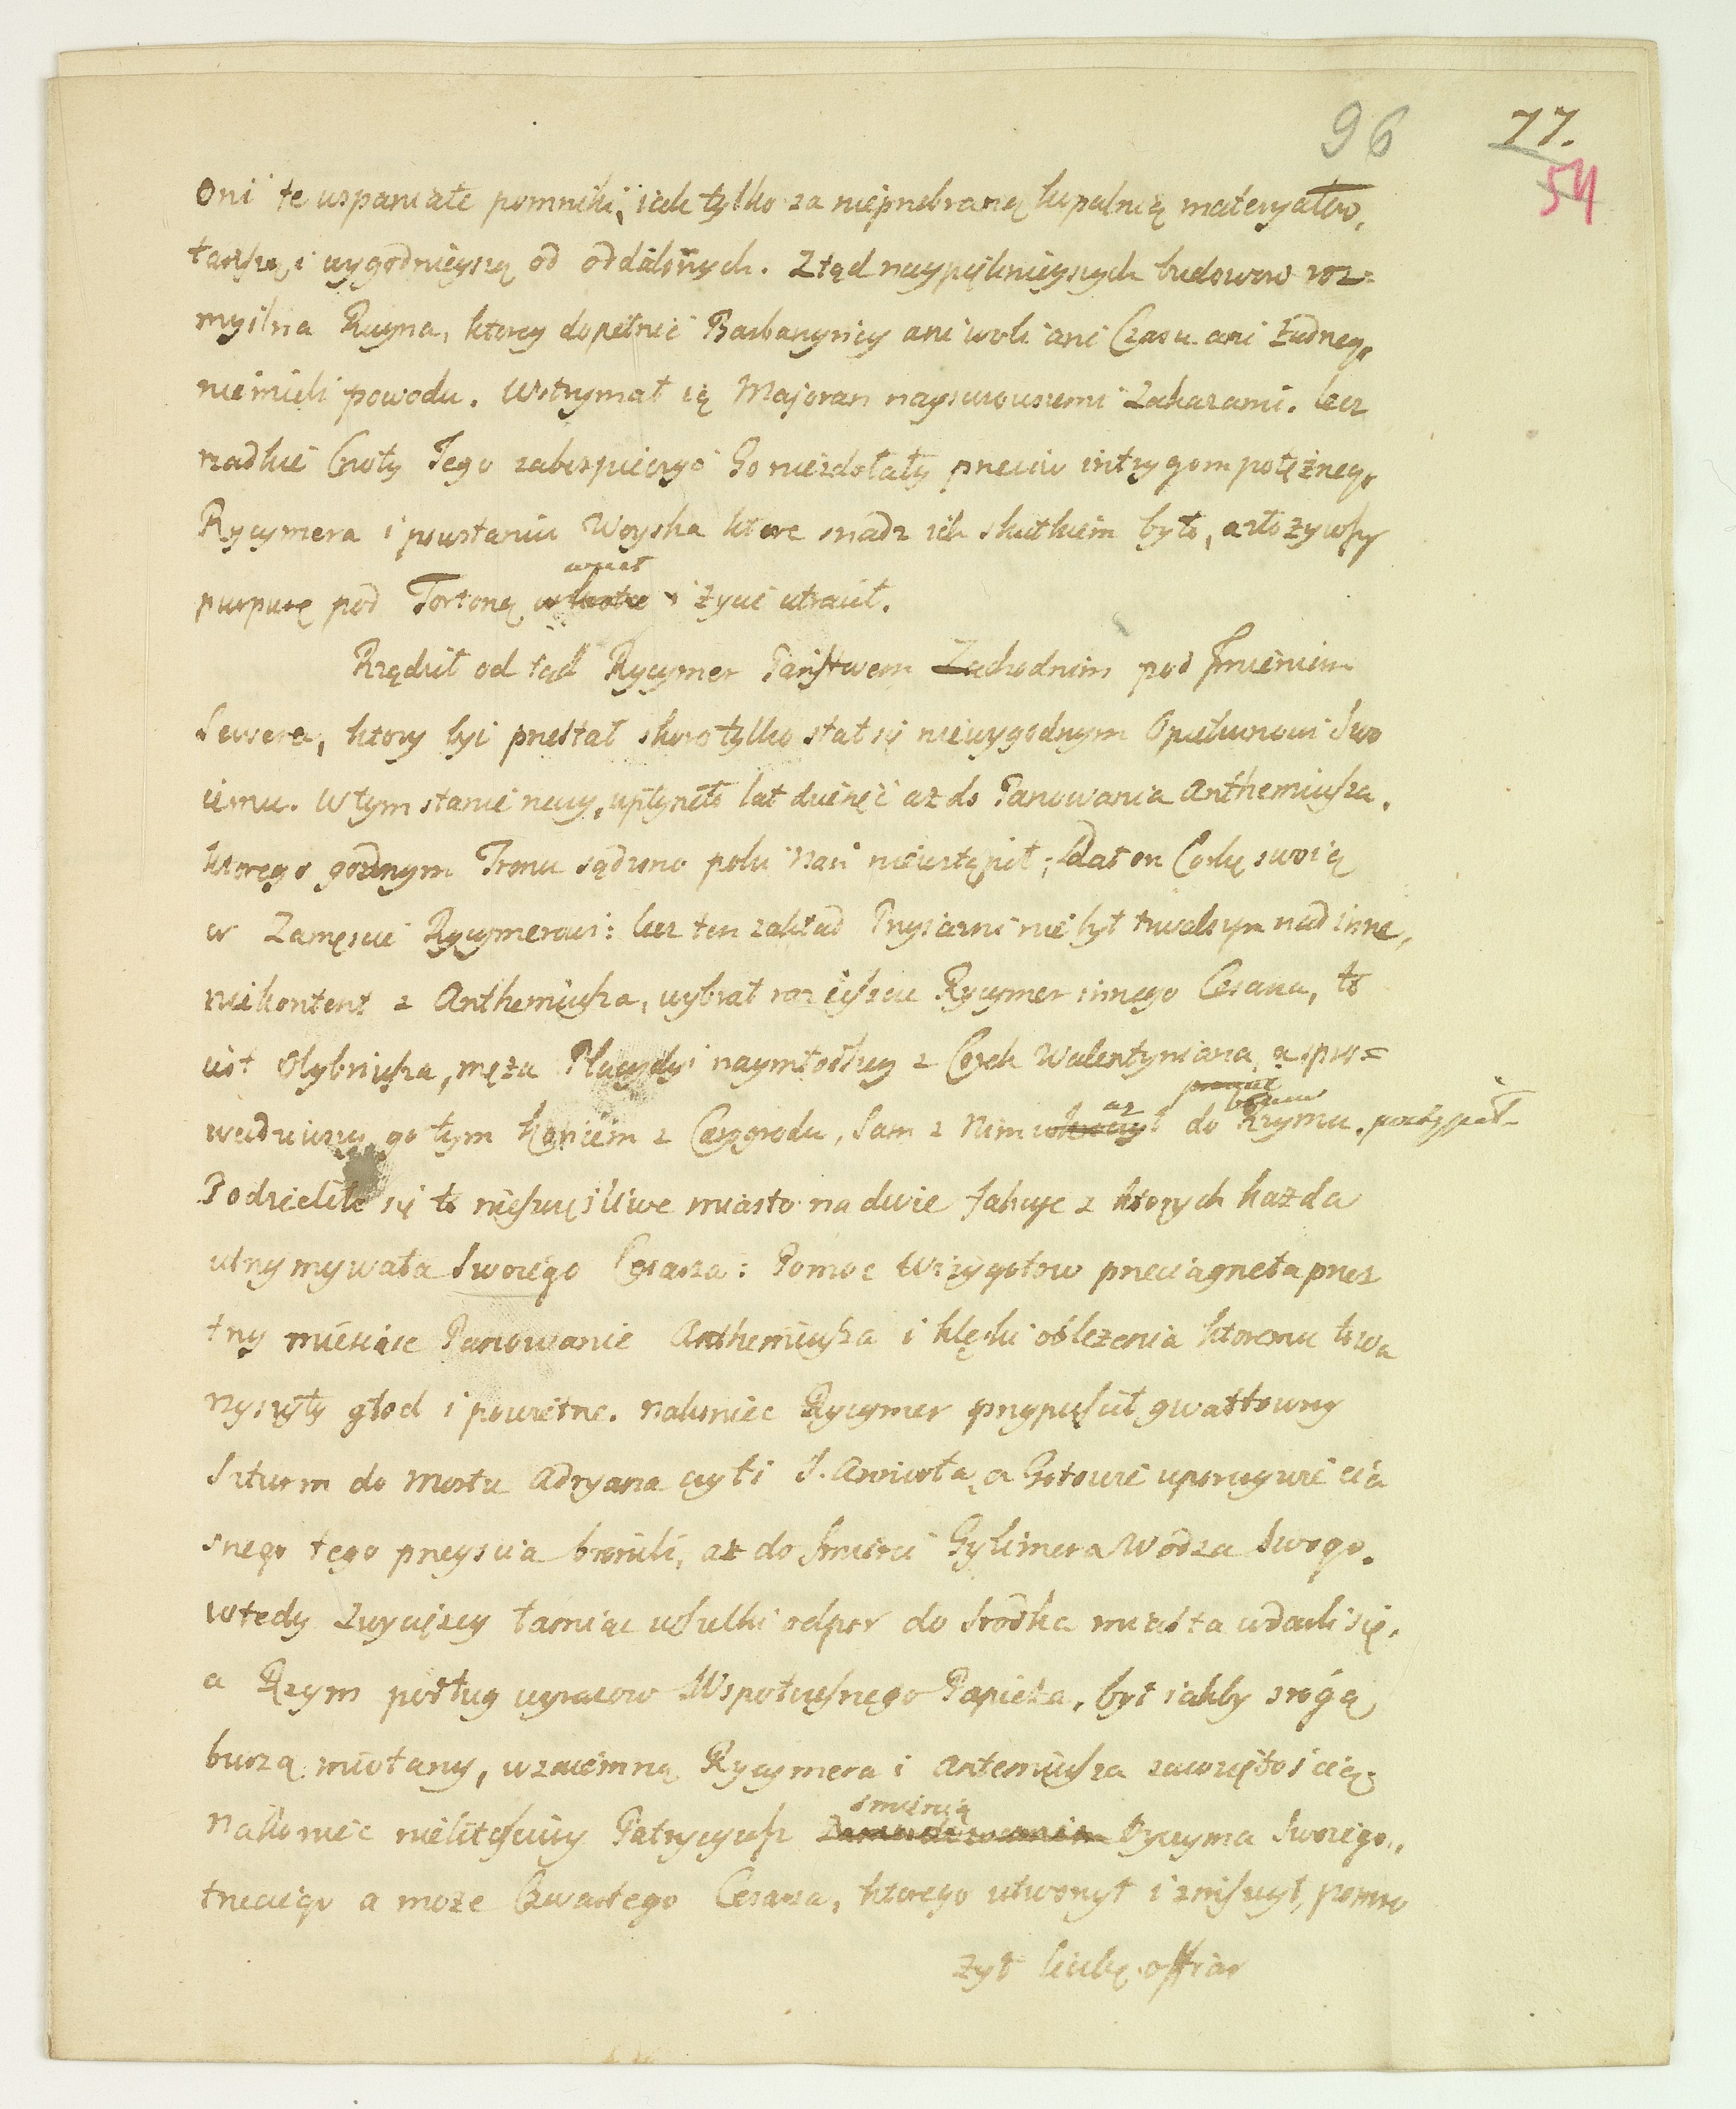 96 77.
54
oni te wspaniałe pomniki, iak tylko za nieprzebraną kupalnią materyałow,
tańszą i wygodnieyszą od oddalonych. Ztąd naypięknieyszych budowow roz=
myślna Ruyna, ktorey dopełnić Barbarzyńcy ani woli ani Czasu ani żadnego
niemieli powodu. Wstrzymał ią Majoran naysurowszemi Zakazami. lecz
rzadkie Cnoty Jego zabezpieczyć Go niezdołały przeciw intrygom potężnego
Rycymera i powstaniu Woyska ktore snadz ich skutkiem było, a złożywszy
wnet
purpurę pod Tortoną i życie utracił.
Rządził od tąd Rycymer Państwem Zachodnim pod Imieniem
Sewera, ktory być przestał skoro tylko stał się niewygodnym Opiekunowi Swo
iemu. W tym stanie rzeczy, upłyneło lat dziesięć aż do Panowania Anthemiusza.
ktorego godnym Tronu sądzono poki Nań niewstąpił; dał on Corkę swoią
w Zamęscie Rycymerowi: lecz ten zakład Przyiazni nie był trwalszym nad inne,
niekontent z Anthemiusza, wybrał raz ieszcze Rycymer innego Cesarza, to
iest Olybriusza, męża Placydyi naymłodszey z Corek Walentyniana, a spro=
prawie
az bram
wadziwszy go tym końcem z Carogrodu, Sam z Nim do Rzymu. podstąpił
Podzieliło się to nieszczęśliwe miasto na dwie fakcye z ktorych każda
utrzymywała Swoiego Cesarza: Pomoc Wizygotow przeciągneła przez
trzy miesiące Panowanie Anthemiusza i klęski oblężenia ktoremu towa
rzyszyły głod i powietrze. nakoniec Rycymer przypuścił gwałtowny
Szturm do Mostu Adryana czyli S. Anioła, a Gotowie uporczywie cia
snego tego przeyscia bronili, aż do Smierci Gylimera Wodza Swego.
wtedy Zwycięzcy łamiąc wszelki odpor do środka miasta wdarli się,
a Rzym podług wyrazow Wspołczesnego Papieża, był iakby srogą
burzą miotany, wzaiemną Rycymera i Antemiusza zawziętoscią.
śmiercią
Nakoniec nielitościwy Patrycyusz Tyczyma Swoiego,
trzeciego a może Czwartego Cesarza, ktorego utworzył i zniszczył, pomno
żył liczbę offiar